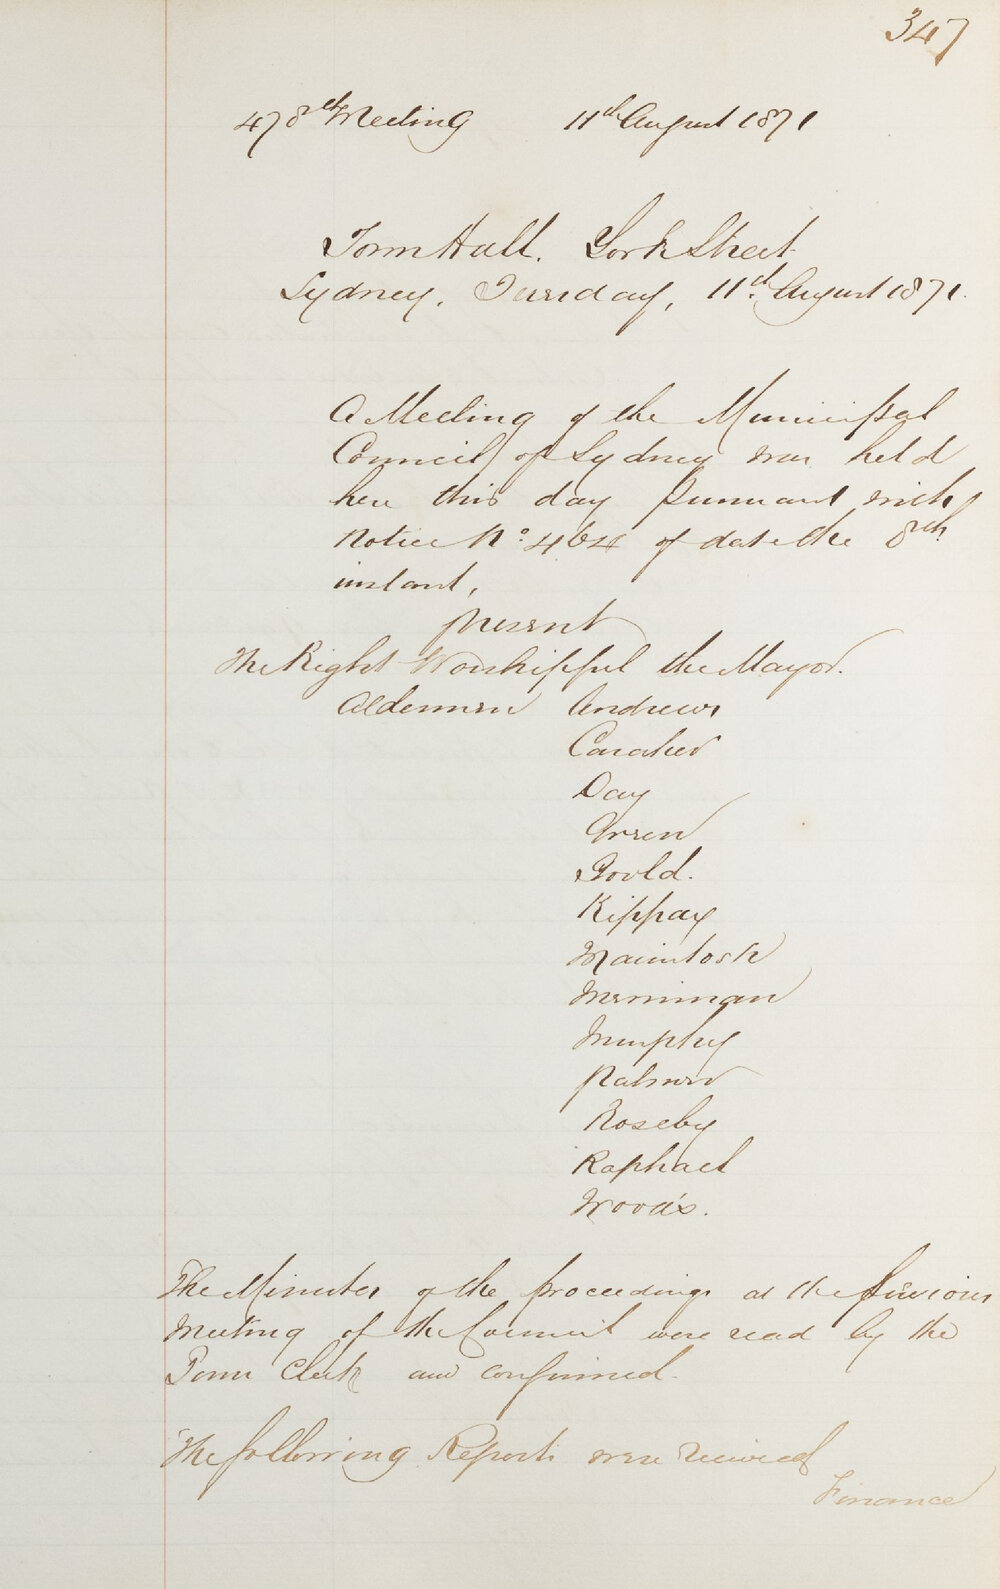 347
478th Meeting 11th August 1871
Town Hall. York Street
Sydney, Tuesday, 11th August 1871.
A Meeting of the Municipal
Council of Sydney was held
here this day Pursuant with
Notice No. 464 of date the 8th
instant,
present
The Right Worshipful the Mayor.
Aldermen Andrews
Caraher
Day
Green
Gould.
Kippax
Macintosh
Merriman
Murphy
Palmer
Roseby
Raphael
Woods.
The Minutes of the proceedings at the previous
Meeting of the Council were read by the
Town Clerk and confirmed.
The following Reports were received
Finance